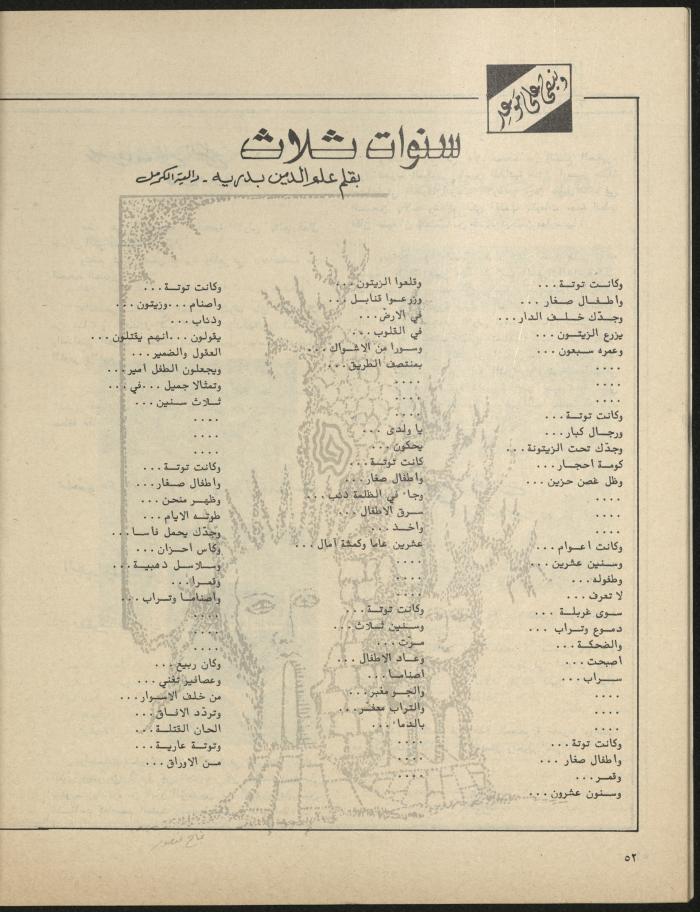 ونبقى على موعد
سنوات ثلاث
بقلم علم الدين بدرية - دالية الكرمل
وكانت توتة...
واطفال صغار...
وجدّك خلف الدار...
يزرع الزيتون...
وعمره سبعون...
....
....
....
وكانت توتة...
ورجال كبار...
وجدّك تحت الزيتونة...
كومة احجار...
وظل غصن حزين...
....
....
....
وكانت اعوام...
وسنين عشرين...
وطفوله...
لا تعرف...
سوى غربلة...
دموع وتراب ...
والضحكة...
اصبحت...
سراب...
....
....
....
وكانت توتة...
واطفال صغار ...
وقمر...
وسنون عشرون...
وقلعوا الزيتون...
وزرعوا قنابل...
في الارض...
في القلوب...
وسورا من الاشواك...
بمنتصف الطريق...
....
....
....
يا ولدي ...
يحكون...
كانت توتة...
واطفال صغار...
وجاء في الظلمة ذئب...
سرق الاطفال ...
واخذ...
عشرين عاما وكمشة آمال...
....
....
....
وكانت توتة...
وسنين ثلاث...
مرّت...
وعاد الاطفال ...
اصناما...
والجو مغبر...
والتراب معفّر...
بالدماء...
....
....
....
وكانت توتة...
واصنام...وزيتون...
وذئاب...
يقولون...انهم يقتلون...
العقول والضمير...
ويجعلون الطفل امير...
وتمثالا جميل...في...
ثلاث سنين...
....
....
....
وكانت توتة...
واطفال صغار...
وظهر منحن...
طوته الايام...
وجدّك يحمل فأسا...
وكأس احزان...
وسلاسل ذهبية...
وقمرا...
واصناما وتراب...
....
....
....
وكان ربيع...
وعصافير تغني...
من خلف الاسوار...
وتردّد الافاق...
الحان القتلة...
وتوتة عارية...
من الاوراق...
٥٢